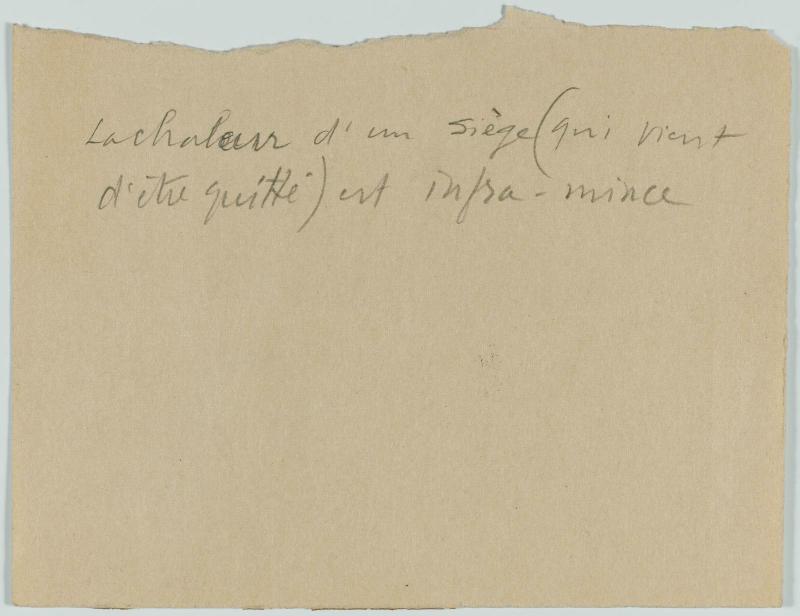 La chaleur d'un siège (qui vient
d'être quitté) est infra-mince